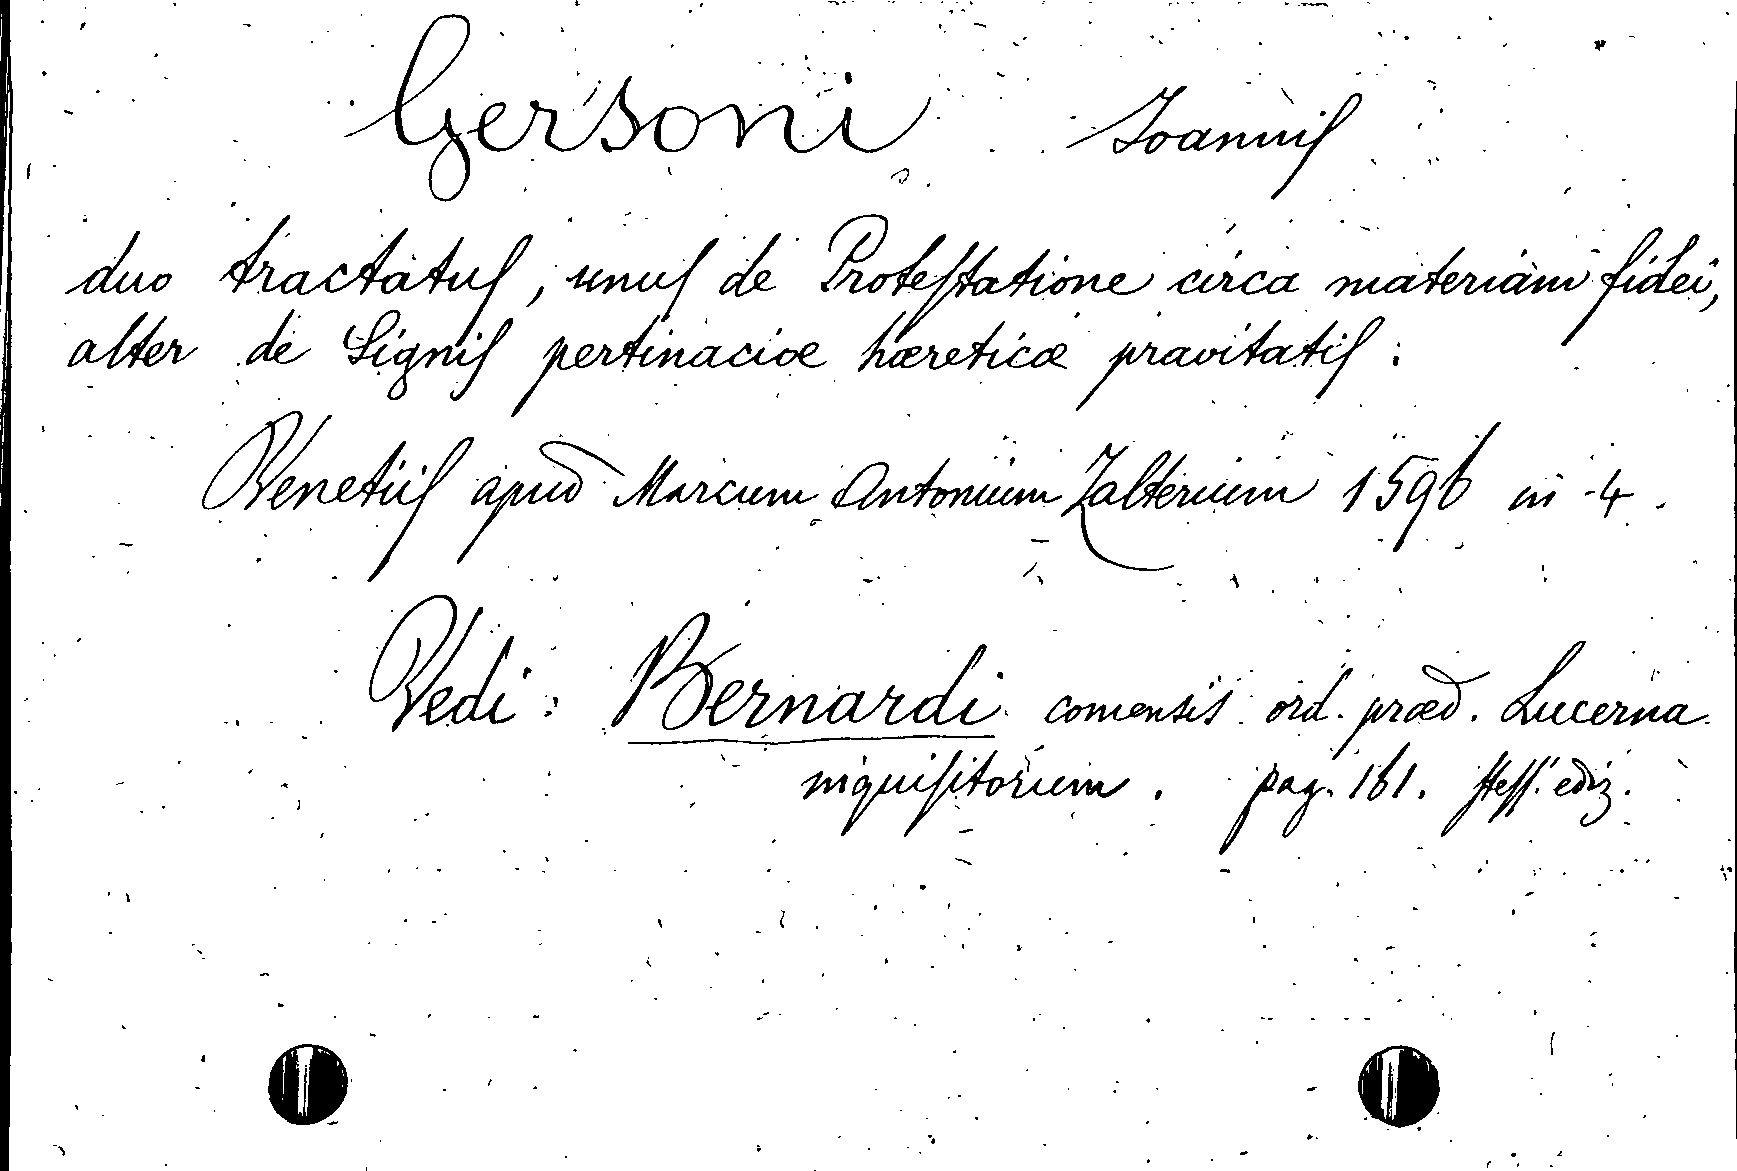 Gersoni Joannis
duo tractatus, unus de Protestatione circa materiam fidei,
alter de Signis pertinaciæ hæreticæ pravitatis.
Venetiis apud Marcum Antonium Zalterium 1596 in 4.
Vedi: Bernardi comensis ord. præd. Lucerna
inquisitorum. pag. 161. stess. ediz.